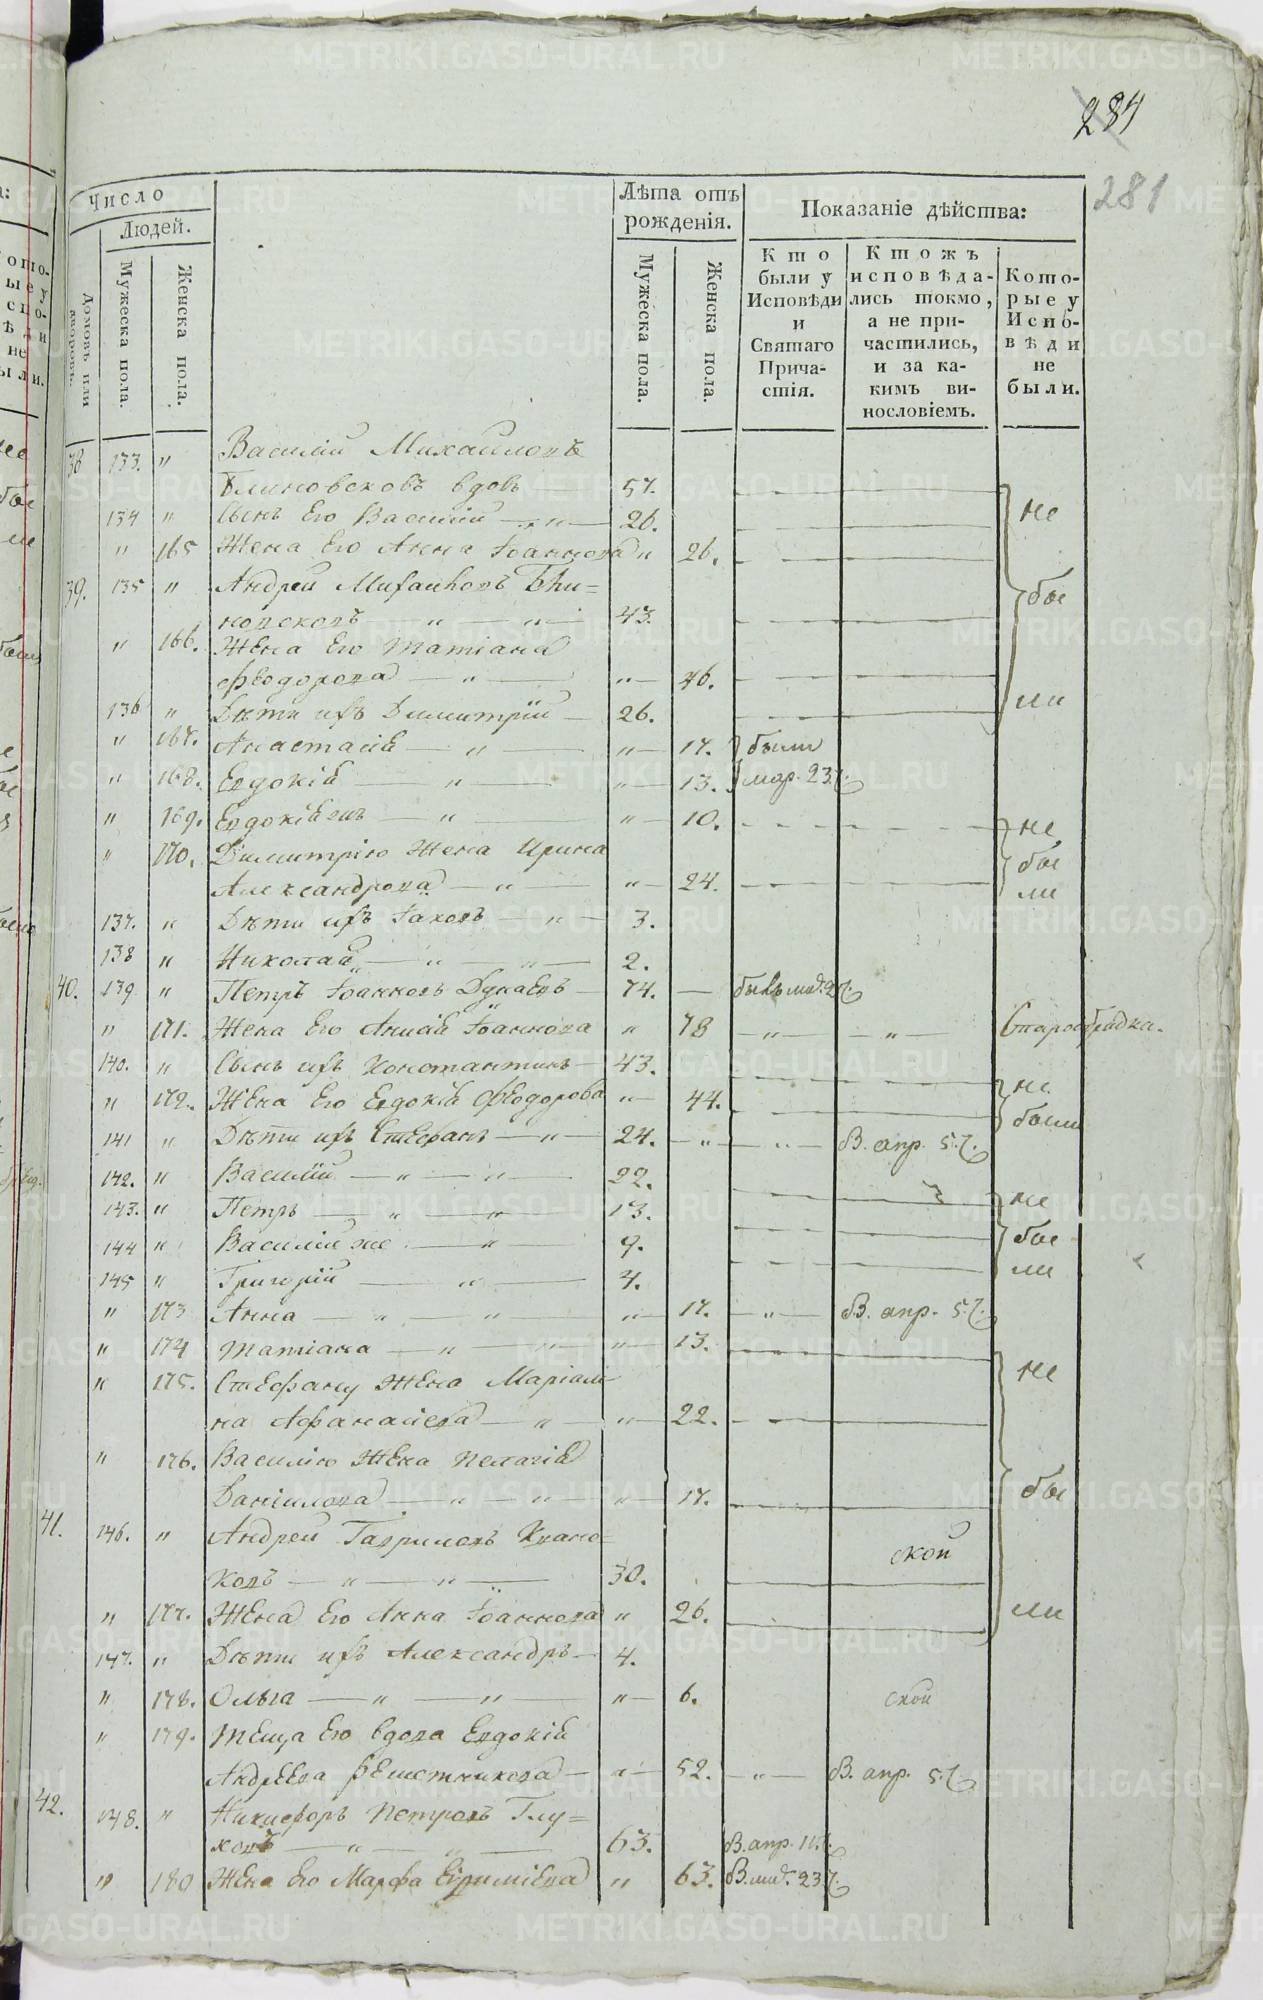 284
281
Число
Людей.
Домовъ или дворовъ.
Мужеска пола.
Женска пола.
Лѣта отъ рожденія.
Мужеска пола.
Женска пола.
Показаніе дѣйства:
Кто были у Исповѣди и Святаго Причастія.
Ктожъ исповѣдались токмо, а не причастились, и за какимъ винословіемъ.
Которые у Исповѣди не были.
38 133. " Василій Михайловъ
Блиновсковъ вдовъ 57.
134 " Сынъ Его Василій — " — 26. не
" 165 Жена Его Анна Іоаннова " 26.
39. 135 " Андрей Михайловъ Бли=
новсковъ — " — " — 43. бы
" 166. Жена Его Татіана
Феодорова — " — " — 46.
136 " Дѣти ихъ Димитрій — 26. ли
" 167. Анастасія — " — " — 17. были
" 168. Евдокія — " — " — 13. мар. 23.
" 169. Евдокія — " — " — 10. не
" 170. Димитрію Жена Ирина бы
Александрова — " — " — 24. ли
137. " Дѣти ихъ Іаковъ — " — 3.
138 " Николай — " — " — 2.
40. 139 " Петръ Іоанновъ Дунаевъ — 74. — былъ
" 171. Жена Его Анисія Іоаннова " 78 — " — — " — Старообрядка.
140. " Сынъ ихъ Константинъ — 43. не
" 172. Жена Его Евдокія Феодорова " — 44. были
141 " Дѣти ихъ Стефанъ — " — 24. — " — — " — В. апр. 5.
142. " Василій — " — " — 22.
143. " Петръ — " — " — 13. не
144 " Василій же — " — 9. бы
145 " Григорій — " — 4. ли
" 173 Анна — " — " — " — 17. — " — В. апр. 5.
" 174 Татіана — " — " — " — 13.
" 175. Стефану Жена Маріам= не
на Афанасьева — " — " — 22.
" 176. Василію Жена Пелагія
Даніилова — " — " — " 17. бы
41. 146. " Андрей Гавриловъ Квано=
ковъ — " — " — 30. ской
" 177. Жена Его Анна Іоаннова " 26. ли
147. " Дѣти ихъ Александръ — 4.
" 178. Ольга — " — " — " — 6. ской
" 179. Теща Его вдова Евдокія
Андреева Решетникова — " — 52. — " — В. апр. 5.
42. 148. " Никифоръ Петровъ Глу=
ховъ — " — " — 63. В. апр. 11.
" 180 Жена Его Марфа " 63. В. 23.
METRIKI.GASO-URAL.RU